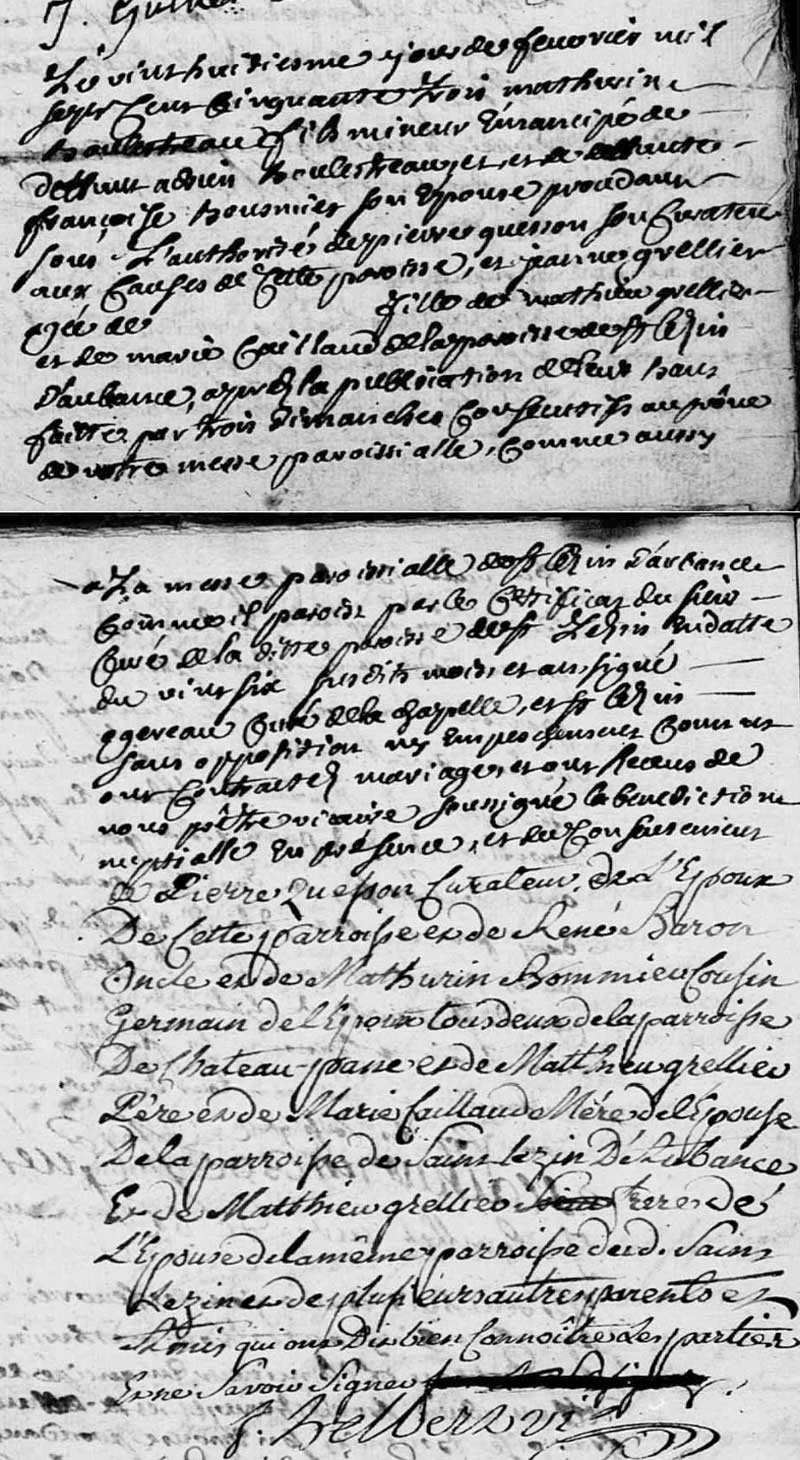 Le vint huitiesme jour de fevorier mil
sept Cent Cinquante trois mathurin
houlestreau fils mineur Emancipé de
deffunt adrien houlestreau, et de deffuncte
françoise boumier son Epouse procedant
sous L'authorité de pierre quesson son Curateur
aux Causes de Cette paroisse, et jeanne grellier
agée de fille de mathieu grellier
et de marie Caillaud de la paroisse de st lezin
D'aubance, aprez la publication de leur bans
faitte par trois dimanches Consecutifs au prône
de notre messe paroissialle, Comme aussy
a La messe paroissialle de st lezin D'aubance
Comme il paroist par le Certificat du sieur
Curé de la ditte paroisse de st Lezin En datte
du vint six susdits mois et an, signé
ogereau Curé de la chapelle, et st lezin
sans opposition ny Empeschement Connu et
ont Contracté mariage, et ont Receus de
nous prêtre vicaire soussigné la benediction
nuptialle En présence, et du Consentement
de Pierre Quesson Curateur, de L'Epoux
De Cette parroisse et de René Baron
Oncle et de Mathurin Bommier Cousin
Germain de l'Epoux tous deux de la parroisse
De Chateau-panne et de Matthieu grellier
Pére et de Marie Caillaud Mére de l'Epouse
De la parroisse de Saint lezin D'Aubance
Et de Matthieu grellier frere de
L'Epouse de la même parroisse dud. Saint
Lezin et de plusieurs autres parents et
Amis qui ont Dit bien Connoître Les parties
Et ne Savoir Signer